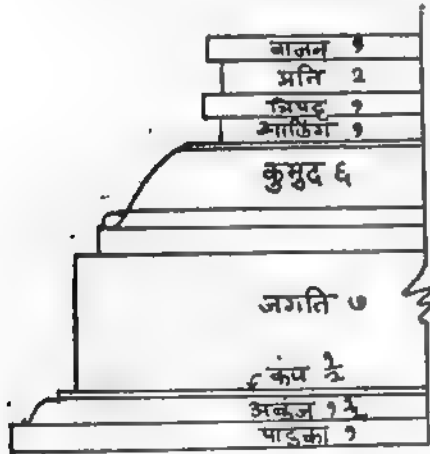 वाजन १
प्रति २
त्रिपट्ट १
आलिंग १
कुमुद ६
जगति ७
कंप १/२
१ १/२
पादुका १